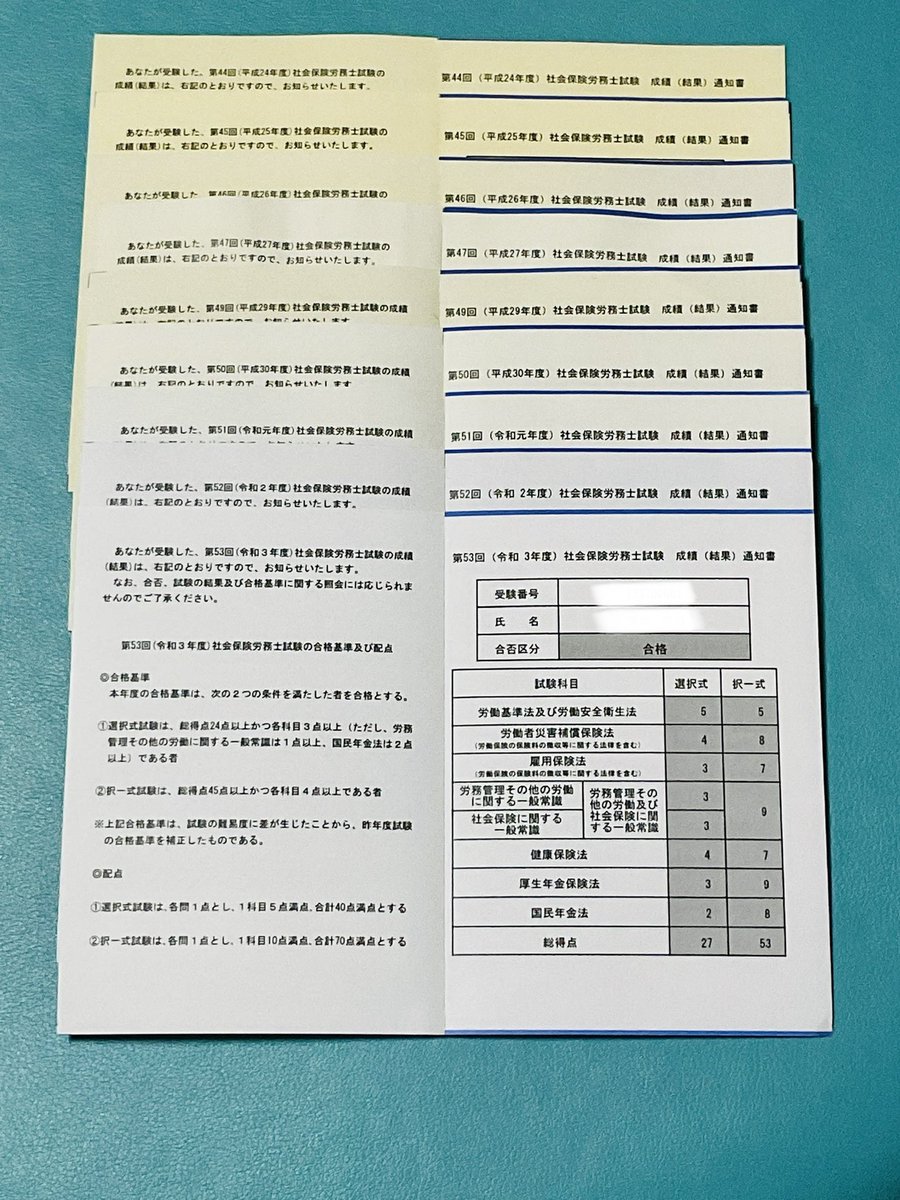 あなたが受験した、第44回(平成24年度)社会保険労務士試験の
成績(結果)は、右記のとおりですので、お知らせいたします。
第44回（平成24年度）社会保険労務士試験　成績（結果）通知書
あなたが受験した、第45回(平成25年度)社会保険労務士試験の
成績(結果)は、右記のとおりですので、お知らせいたします。
第45回（平成25年度）社会保険労務士試験　成績（結果）通知書
あなたが受験した、第46回(平成26年度)社会保険労務士試験の
第46回（平成26年度）社会保険労務士試験　成績（結果）通知書
あなたが受験した、第47回(平成27年度)社会保険労務士試験の
成績(結果)は、右記のとおりですので、お知らせいたします。
第47回（平成27年度）社会保険労務士試験　成績（結果）通知書
あなたが受験した、第49回(平成29年度)社会保険労務士試験の成績
(結果)は、右記のとおりですので、お知らせいたします。
第49回（平成29年度）社会保険労務士試験　成績（結果）通知書
あなたが受験した、第50回(平成30年度)社会保険労務士試験の成績
(結果)は、右記のとおりですので、お知らせいたします。
第50回（平成30年度）社会保険労務士試験　成績（結果）通知書
あなたが受験した、第51回(令和元年度)社会保険労務士試験の成績
第51回（令和元年度）社会保険労務士試験　成績（結果）通知書
あなたが受験した、第52回(令和２年度)社会保険労務士試験の成績
(結果)は、右記のとおりですので、お知らせいたします。
第52回（令和 2年度）社会保険労務士試験　成績（結果）通知書
あなたが受験した、第53回(令和３年度)社会保険労務士試験の成績
(結果)は、右記のとおりですので、お知らせいたします。
なお、合否、試験の結果及び合格基準に関する照会には応じられま
せんのでご了承ください。
第53回(令和３年度)社会保険労務士試験の合格基準及び配点
◎合格基準
本年度の合格基準は、次の２つの条件を満たした者を合格とする。
①選択式試験は、総得点24点以上かつ各科目３点以上（ただし、労務
管理その他の労働に関する一般常識は１点以上、国民年金法は２点
以上）である者
②択一式試験は、総得点45点以上かつ各科目４点以上である者
※上記合格基準は、試験の難易度に差が生じたことから、昨年度試験
の合格基準を補正したものである。
◎配点
①選択式試験は、各問１点とし、１科目５点満点、合計40点満点とする
②択一式試験は、各問１点とし、１科目10点満点、合計70点満点とする
第53回（令和 3年度）社会保険労務士試験　成績（結果）通知書
受験番号
氏　名
合否区分　合格
試験科目　選択式　択一式
労働基準法及び労働安全衛生法　5　5
労働者災害補償保険法　4　8
(労働保険の保険料の徴収等に関する法律を含む)
雇用保険法　3　7
(労働保険の保険料の徴収等に関する法律を含む)
労務管理その他の労働
に関する一般常識　3
社会保険に関する
一般常識　3
労務管理その
他の労働及び
社会保険に関
する一般常識　9
健康保険法　4　7
厚生年金保険法　3　9
国民年金法　2　8
総得点　27　53